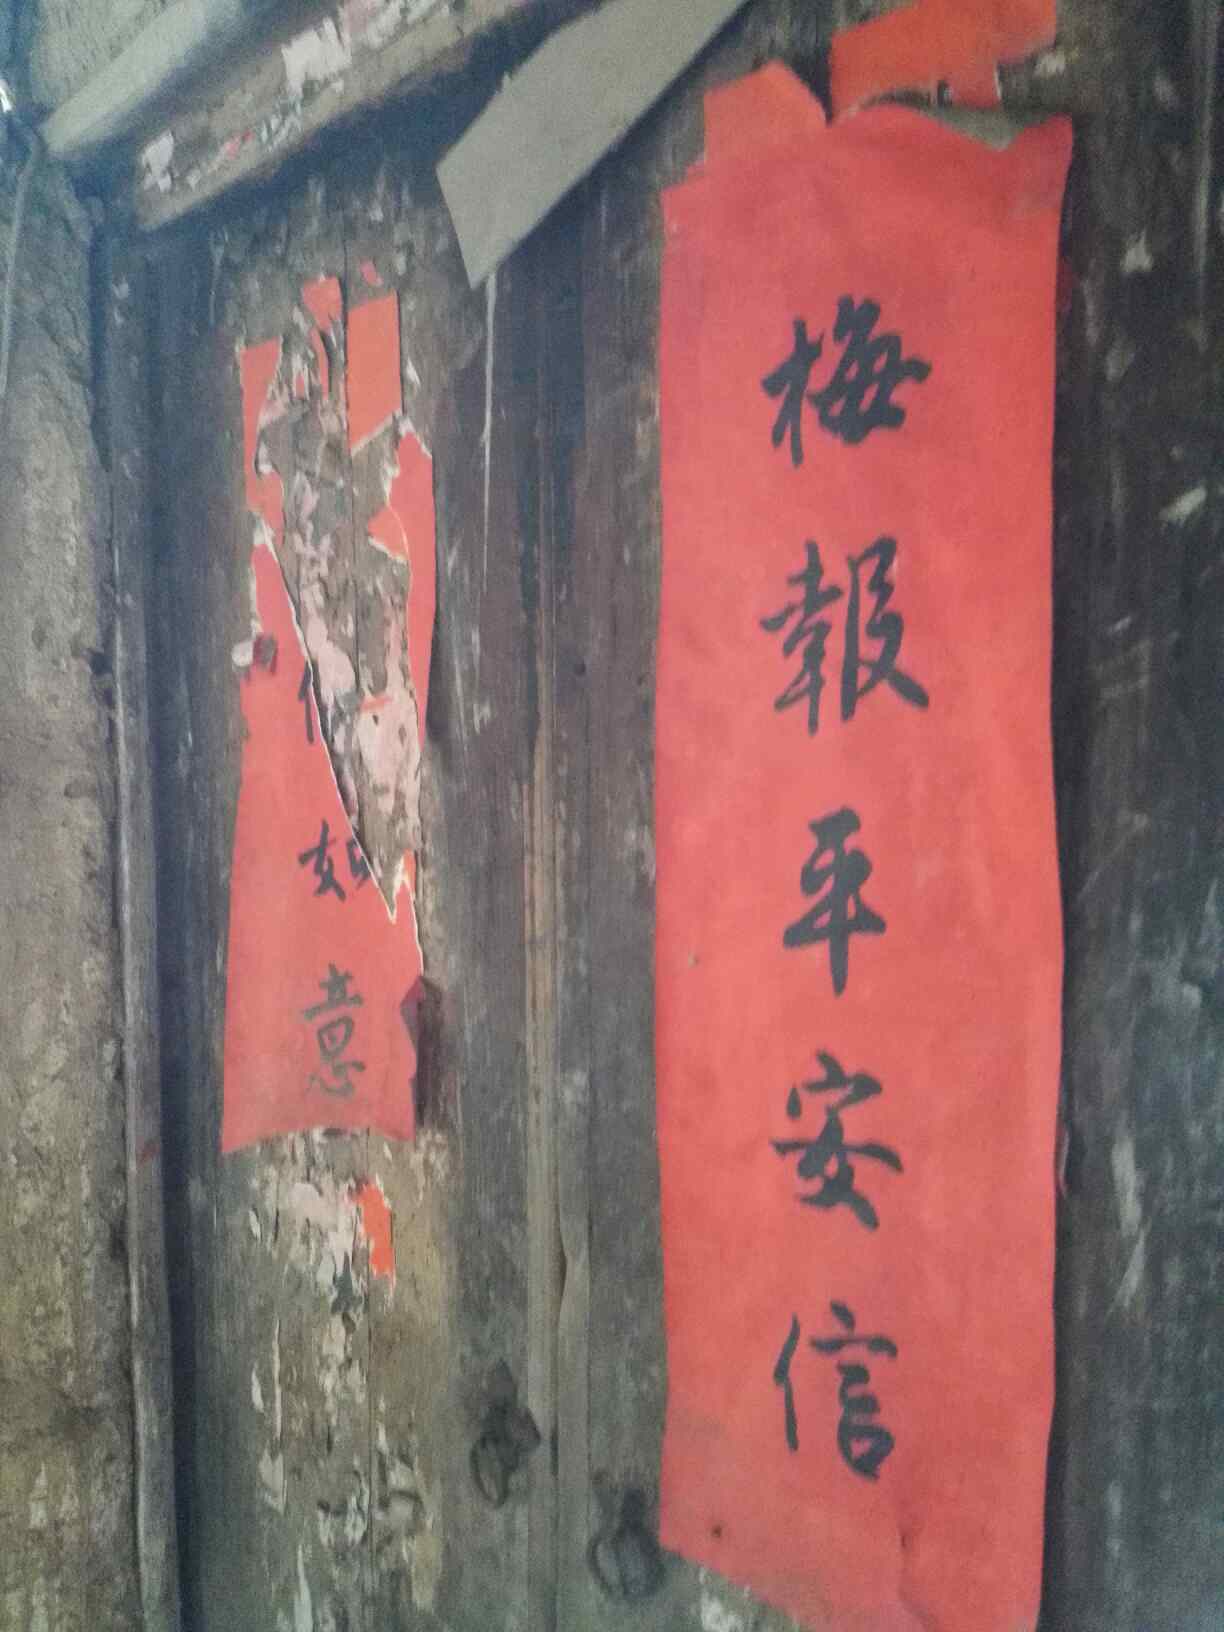 梅報平安信
如意